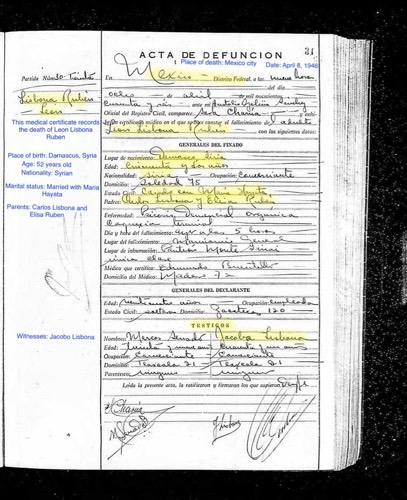 31
ACTA DE DEFUNCION
Place of death: Mexico city
Date: April 8, 1946
Partida Núm. 30. treinta
En Mexico Distrito Federal, a las nueve horas
del día
de abril de mil novecientos
Lisbona Rubén
Leon
cuarenta y seis ante mí
Oficial del Registro Civil, comparece Sara Chania
This medical certificate records
the death of Leon Lisbona
Ruben
certificado médico en el que consta el fallecimiento del adulto
Leon Lisbona Rubén con las siguientes
GENERALES DEL FINADO
Lugar de nacimiento: Damasco, Siria
Place of birth: Damascus, Syria
Age: 52 years old
Nationality: Syrian
Edad: Cincuenta y dos años
Nacionalidad: siria Ocupación: comerciante
Domicilio: Soledad 75
Marital status: Married with Maria
Hayata
Estado Civil: Casado con María
Padres: Carlos Lisbona y Elisa Rubén
Parents: Carlos Lisbona and
Elisa Ruben
Enfermedad: Psicosis Demencial organica
Caquexia terminal
Día y hora del fallecimiento: ayer a las 5 horas
Lugar del fallecimiento: Manicomio General
Lugar de inhumación: Panteón Monte Sinai
clase
Médico que certifica: Edmundo Buentello
Domicilio del Médico: Madero 72
GENERALES DEL DECLARANTE
Edad: veintisiete años Ocupación: empleada
Estado Civil: soltera Domicilio: Zacatecas 120
TESTIGOS
Witnesses: Jacobo Lisbona
Nombres: Marcos Jacobo Lisbona
Edad: treinta y nueve años Cuarenta y un años
Ocupación: Comerciante Comerciante
Domicilio: Tlaxcala 21 Tlaxcala 21
Parentesco: ninguno ninguno
Leída la presente acta, la ratificaron y firmaron los que supieron